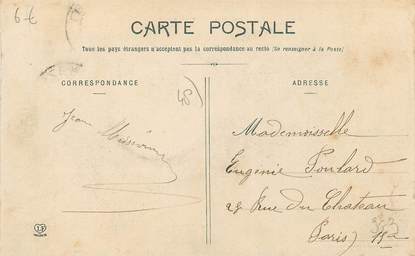 6€
CARTE POSTALE
Tous les pays étrangers n'acceptent pas la correspondance au recto (Se renseigner à la Poste)
CORRESPONDANCE
ADRESSE
Jean
Mademoiselle
Eugenie Poulard
Rue du Chateau
Paris) 15e